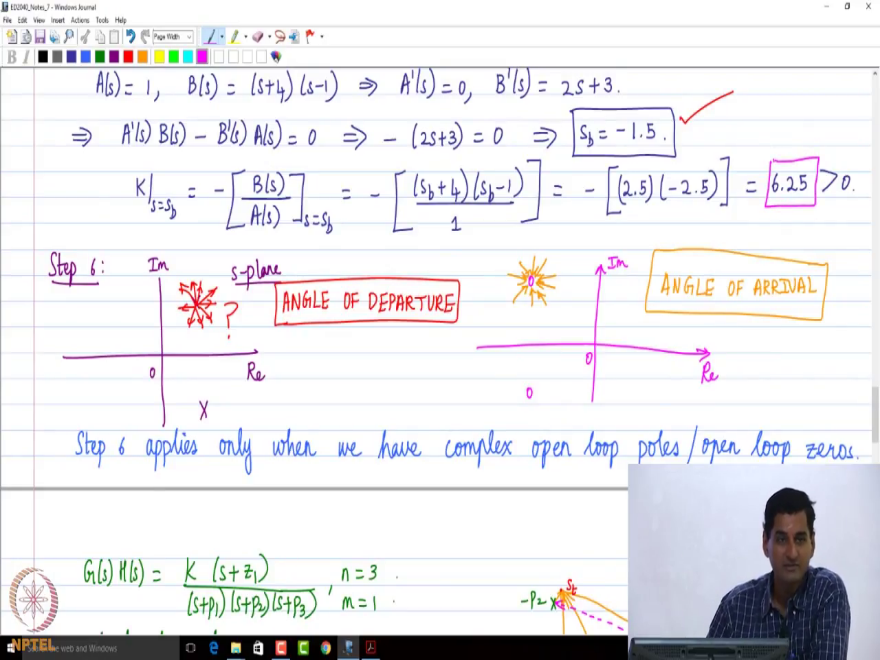 ED2040_Notes_7 - Windows Journal
File Edit View Insert Actions Tools Help
Page Width
B I
A(s) = 1, B(s) = (s+4)(s-1) ⇒ A'(s) = 0, B'(s) = 2s+3.
⇒ A'(s) B(s) - B'(s) A(s) = 0 ⇒ -(2s+3) = 0 ⇒ s_b = -1.5. ✓
K|_{s=s_b} = -[B(s)/A(s)]_{s=s_b} = -[(s_b+4)(s_b-1)/1] = -[(2.5)(-2.5)] = 6.25 > 0.
Step 6: Im s-plane
ANGLE OF DEPARTURE
?
0 Re
X
Im
ANGLE OF ARRIVAL
0
0 Re
0
Step 6 applies only when we have complex open loop poles/open loop zeros.
G(s) H(s) = K (s+z_1) / (s+p_1)(s+p_2)(s+p_3), n = 3
m = 1
-p2 X s_t
NPTEL
the web and Windows